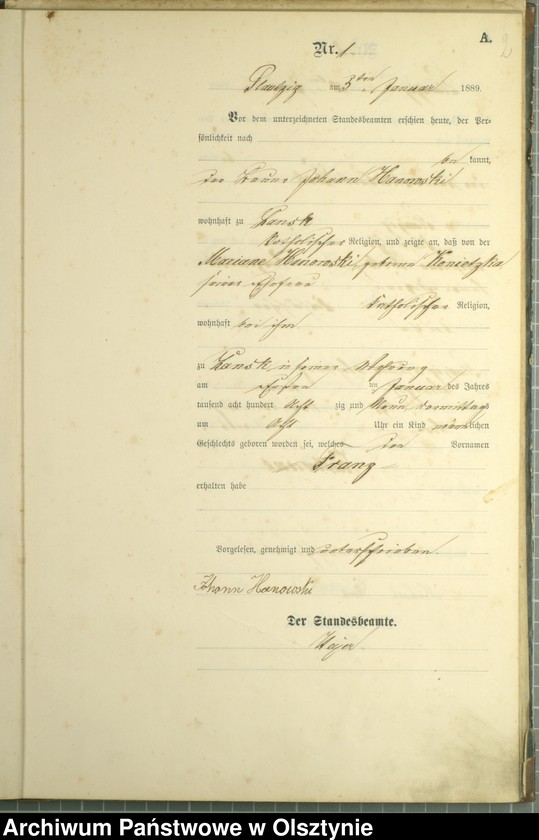 A.
2
Nr. 1
Plautzig am 3ten Januar 1889.
Vor dem unterzeichneten Standesbeamten erschien heute, der Per=
sönlichkeit nach
be kannt,
der Johann Hanowski
wohnhaft zu Lansk
katholischer Religion, und zeigte an, daß von der
Mariane Hanowski, geborne
seiner Ehefrau
katholischer Religion,
wohnhaft bei ihm
zu Lansk in seiner Wohnung
am ersten ten Januar des Jahres
tausend acht hundert acht zig und Neun, Vormittags
um acht Uhr ein Kind männlichen
Geschlechts geboren worden sei, welches den Vornamen
Franz
erhalten habe
Vorgelesen, genehmigt und unterschrieben.
Johann Hanowski
Der Standesbeamte.
Archiwum Państwowe w Olsztynie